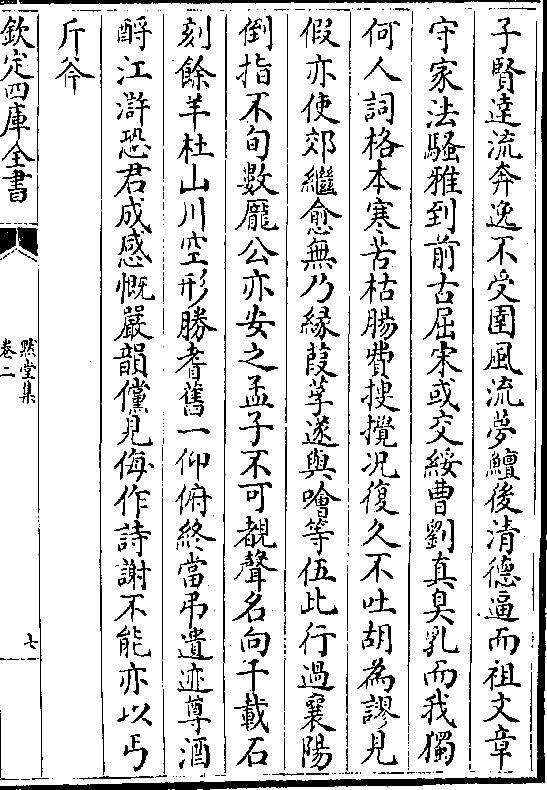 子賢達流奔逸不受圉風流夢鱣後清德逼而祖文章
守家法騷雅到前古屈宋或交綏曹劉真臭乳而我獨
何人詞格本寒苦枯腸費搜攪况復久不吐胡為謬見
假亦使郊繼愈無乃緣葭莩遂與噲等伍此行過襄陽
倒指不旬數龎公亦安之孟子不可覩聲名向千載石
刻餘羊杜山川空形勝耆舊一仰俯終當弔遺迹尊酒
酹江滸恐君成感慨嚴韻儻見侮作詩謝不能亦以丐
斤斧
欽定四庫全書
㸃堂集
卷二
七